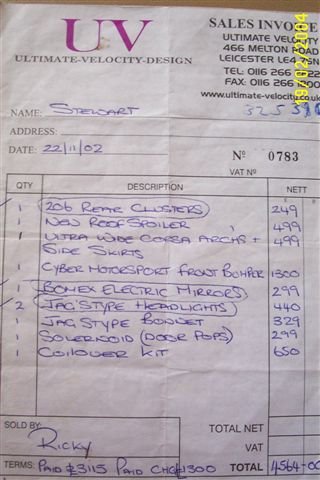 UV
ULTIMATE-VELOCITY-DESIGN
SALES INVOICE
ULTIMATE VELOCITY
466 MELTON ROAD
LEICESTER LE4
TEL: 0116 266
FAX: 0116 266
www.ultimate-velocity.co.uk
19/02/2004
NAME: STEWART
ADDRESS:
DATE: 22/11/02
Nº 0783
VAT Nº
QTY DESCRIPTION NETT
1 206 REAR CLUSTERS 249
1 NEW ROOF SPOILER 499
1 ULTRA WIDE CORSA ARCHS + 499
SIDE SKIRTS
1 CYBER MOTORSPORT FRONT BUMPER 1300
1 BOMEX ELECTRIC MIRRORS 299
2 JAG STYPE HEADLIGHTS 440
1 JAG STYPE BONNET 329
1 SOLERNOID (DOOR POPS) 299
1 COILOVER KIT 650
SOLD BY:
RICKY
TOTAL NET
VAT
TERMS: PAID £3115 PAID CHQ £1300 TOTAL 4564-00